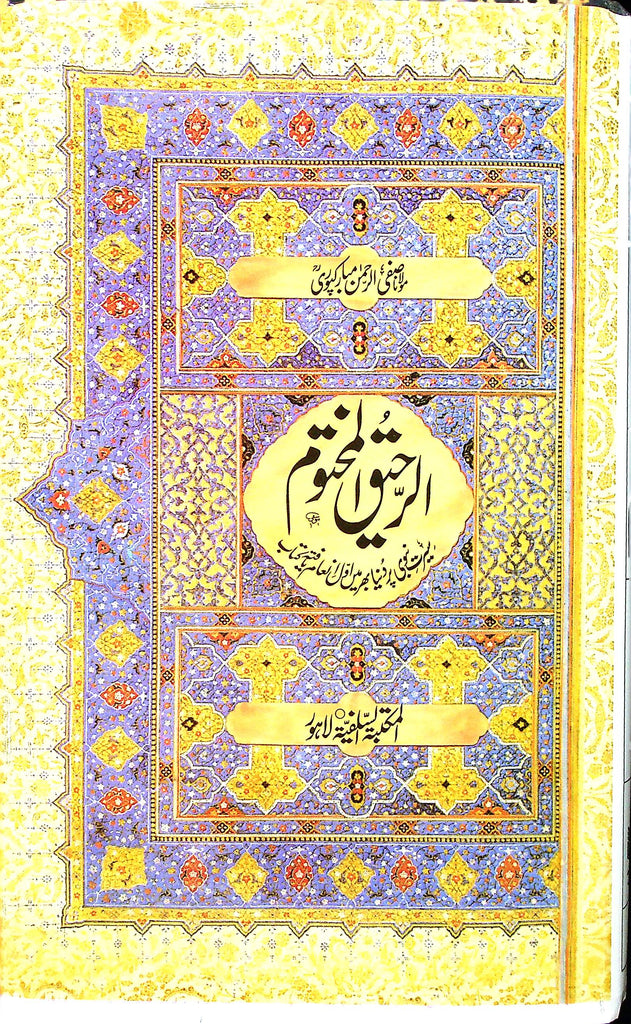 مولانا صفی الرحمٰن مبارکپوریؒ
الرحیق المختوم
سیرت نبوی پر دنیا بھر میں اول انعام یافتہ کتاب
المکتبۃ السلفیۃ ○ لاہور